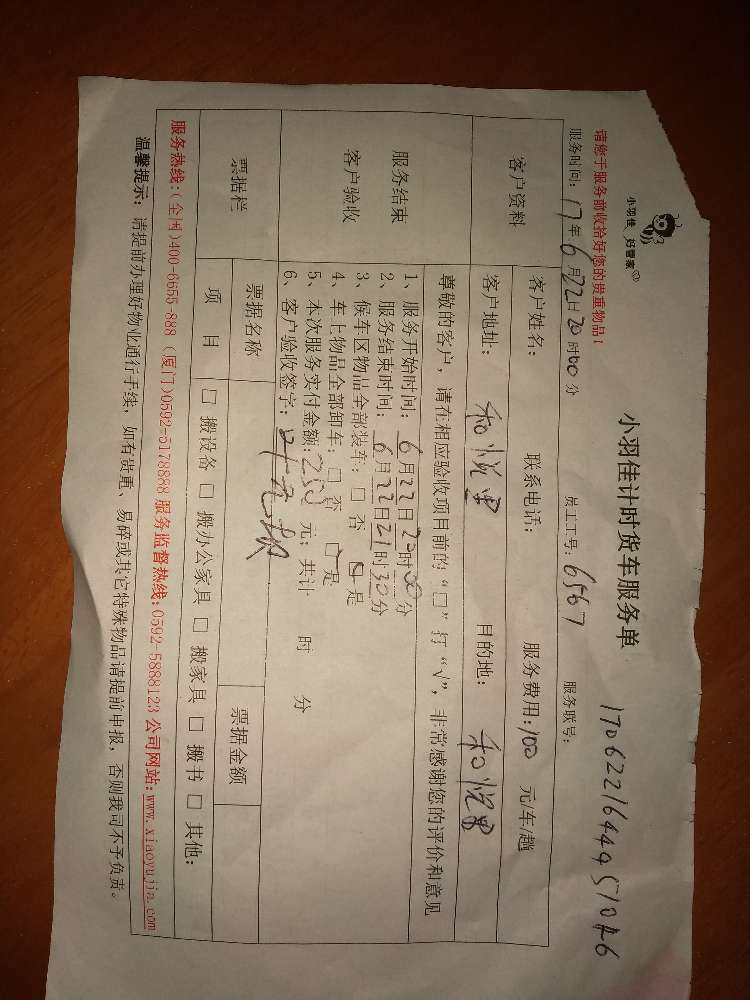 小羽佳 好管家
小羽佳计时货车服务单
170622164495104 6
请您于服务前收拾好您的贵重物品!
服务时间: 17年6月22日20时00分 员工工号: 6567 服务账号:
客户资料 客户姓名: 联系电话: 服务费用:100 元/车/趟
客户地址: 和悦里 目的地: 和悦里
服务结束
客户验收
尊敬的客户, 请在相应验收项目前的“□”打“√”, 非常感谢您的评价和意见
1、服务开始时间: 6月22日20时00分
2、服务结束时间: 6月22日21时30分
3、候车区物品全部装车: □ 否 □ 是
4、车上物品全部卸车: □ 否 □ 是
5、本次服务实付金额: 250 元; 共计 时 分
6、客户验收签字:
票据栏 票据名称 票据金额
项 目 □ 搬设备 □ 搬办公家具 □ 搬家具 □ 搬书 □ 其他:
服务热线:(全国)400-6655-888 (厦门)0592-5178888 服务监督热线:0592-5888123 公司网站:www.xiaoyujia.com
温馨提示: 请提前办理好物业通行手续, 如有贵重、易碎或其它特殊物品请提前申报, 否则我司不予负责。